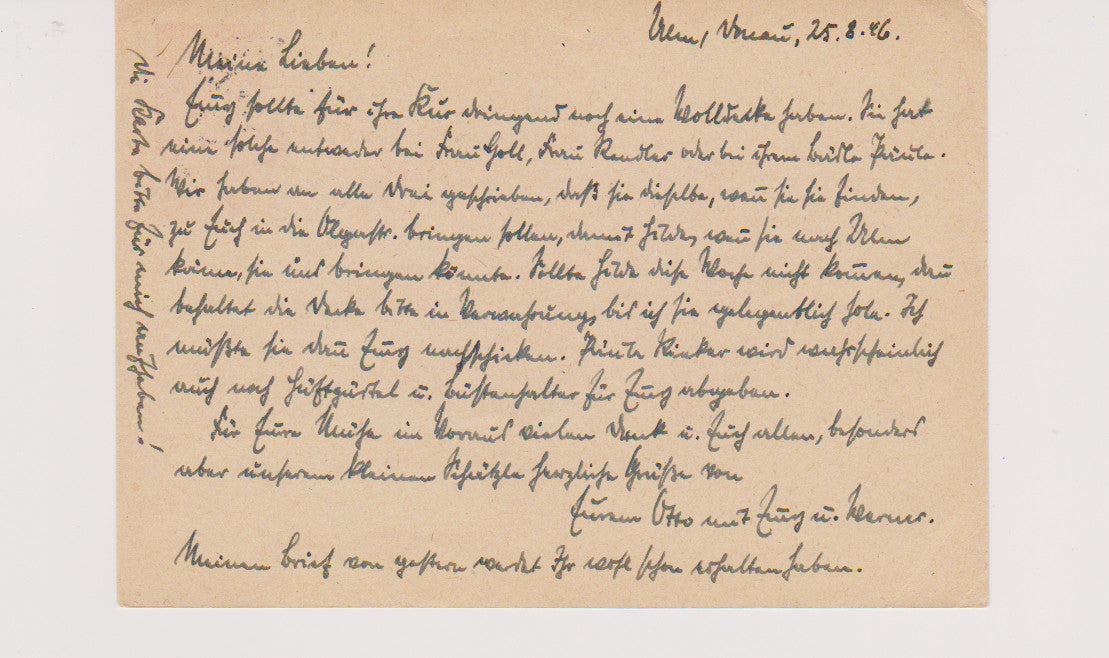 Ulm, Donau, 25.8.46.
Meine Lieben!
sollte für ihre Kur dringend noch eine Wolldecke haben. Sie hat
eine solche entweder bei Frau Goll, Frau Rendler oder bei ihrem Bädle Paula.
Wir haben an alle drei geschrieben, daß sie dieselbe, wen̄ sie sie finden,
zu Euch in die Olgastr. bringen sollen, damit Hilde, wen̄ sie nach Ulm
käme, sie uns bringen könnte. Sollte Hilde diese Woche nicht kom̄en, dan̄
behaltet die Decke bitte in Verwahrung, bis ich sie gelegentlich hole. Ich
müßte sie dan̄ nachschicken. Paula wird wahrscheinlich
auch noch Hüftgürtel u. Büstenhalter für abgeben.
Für Eure Mühe im Voraus vielen Dank u. Euch allen, besonders
aber unserem kleinen Schätzle herzliche Grüße von
Eurem Otto mit u. Werner.
Meinen Brief von gestern werdet Ihr wohl schon erhalten haben.
Die Karte bitte für mich aufheben!